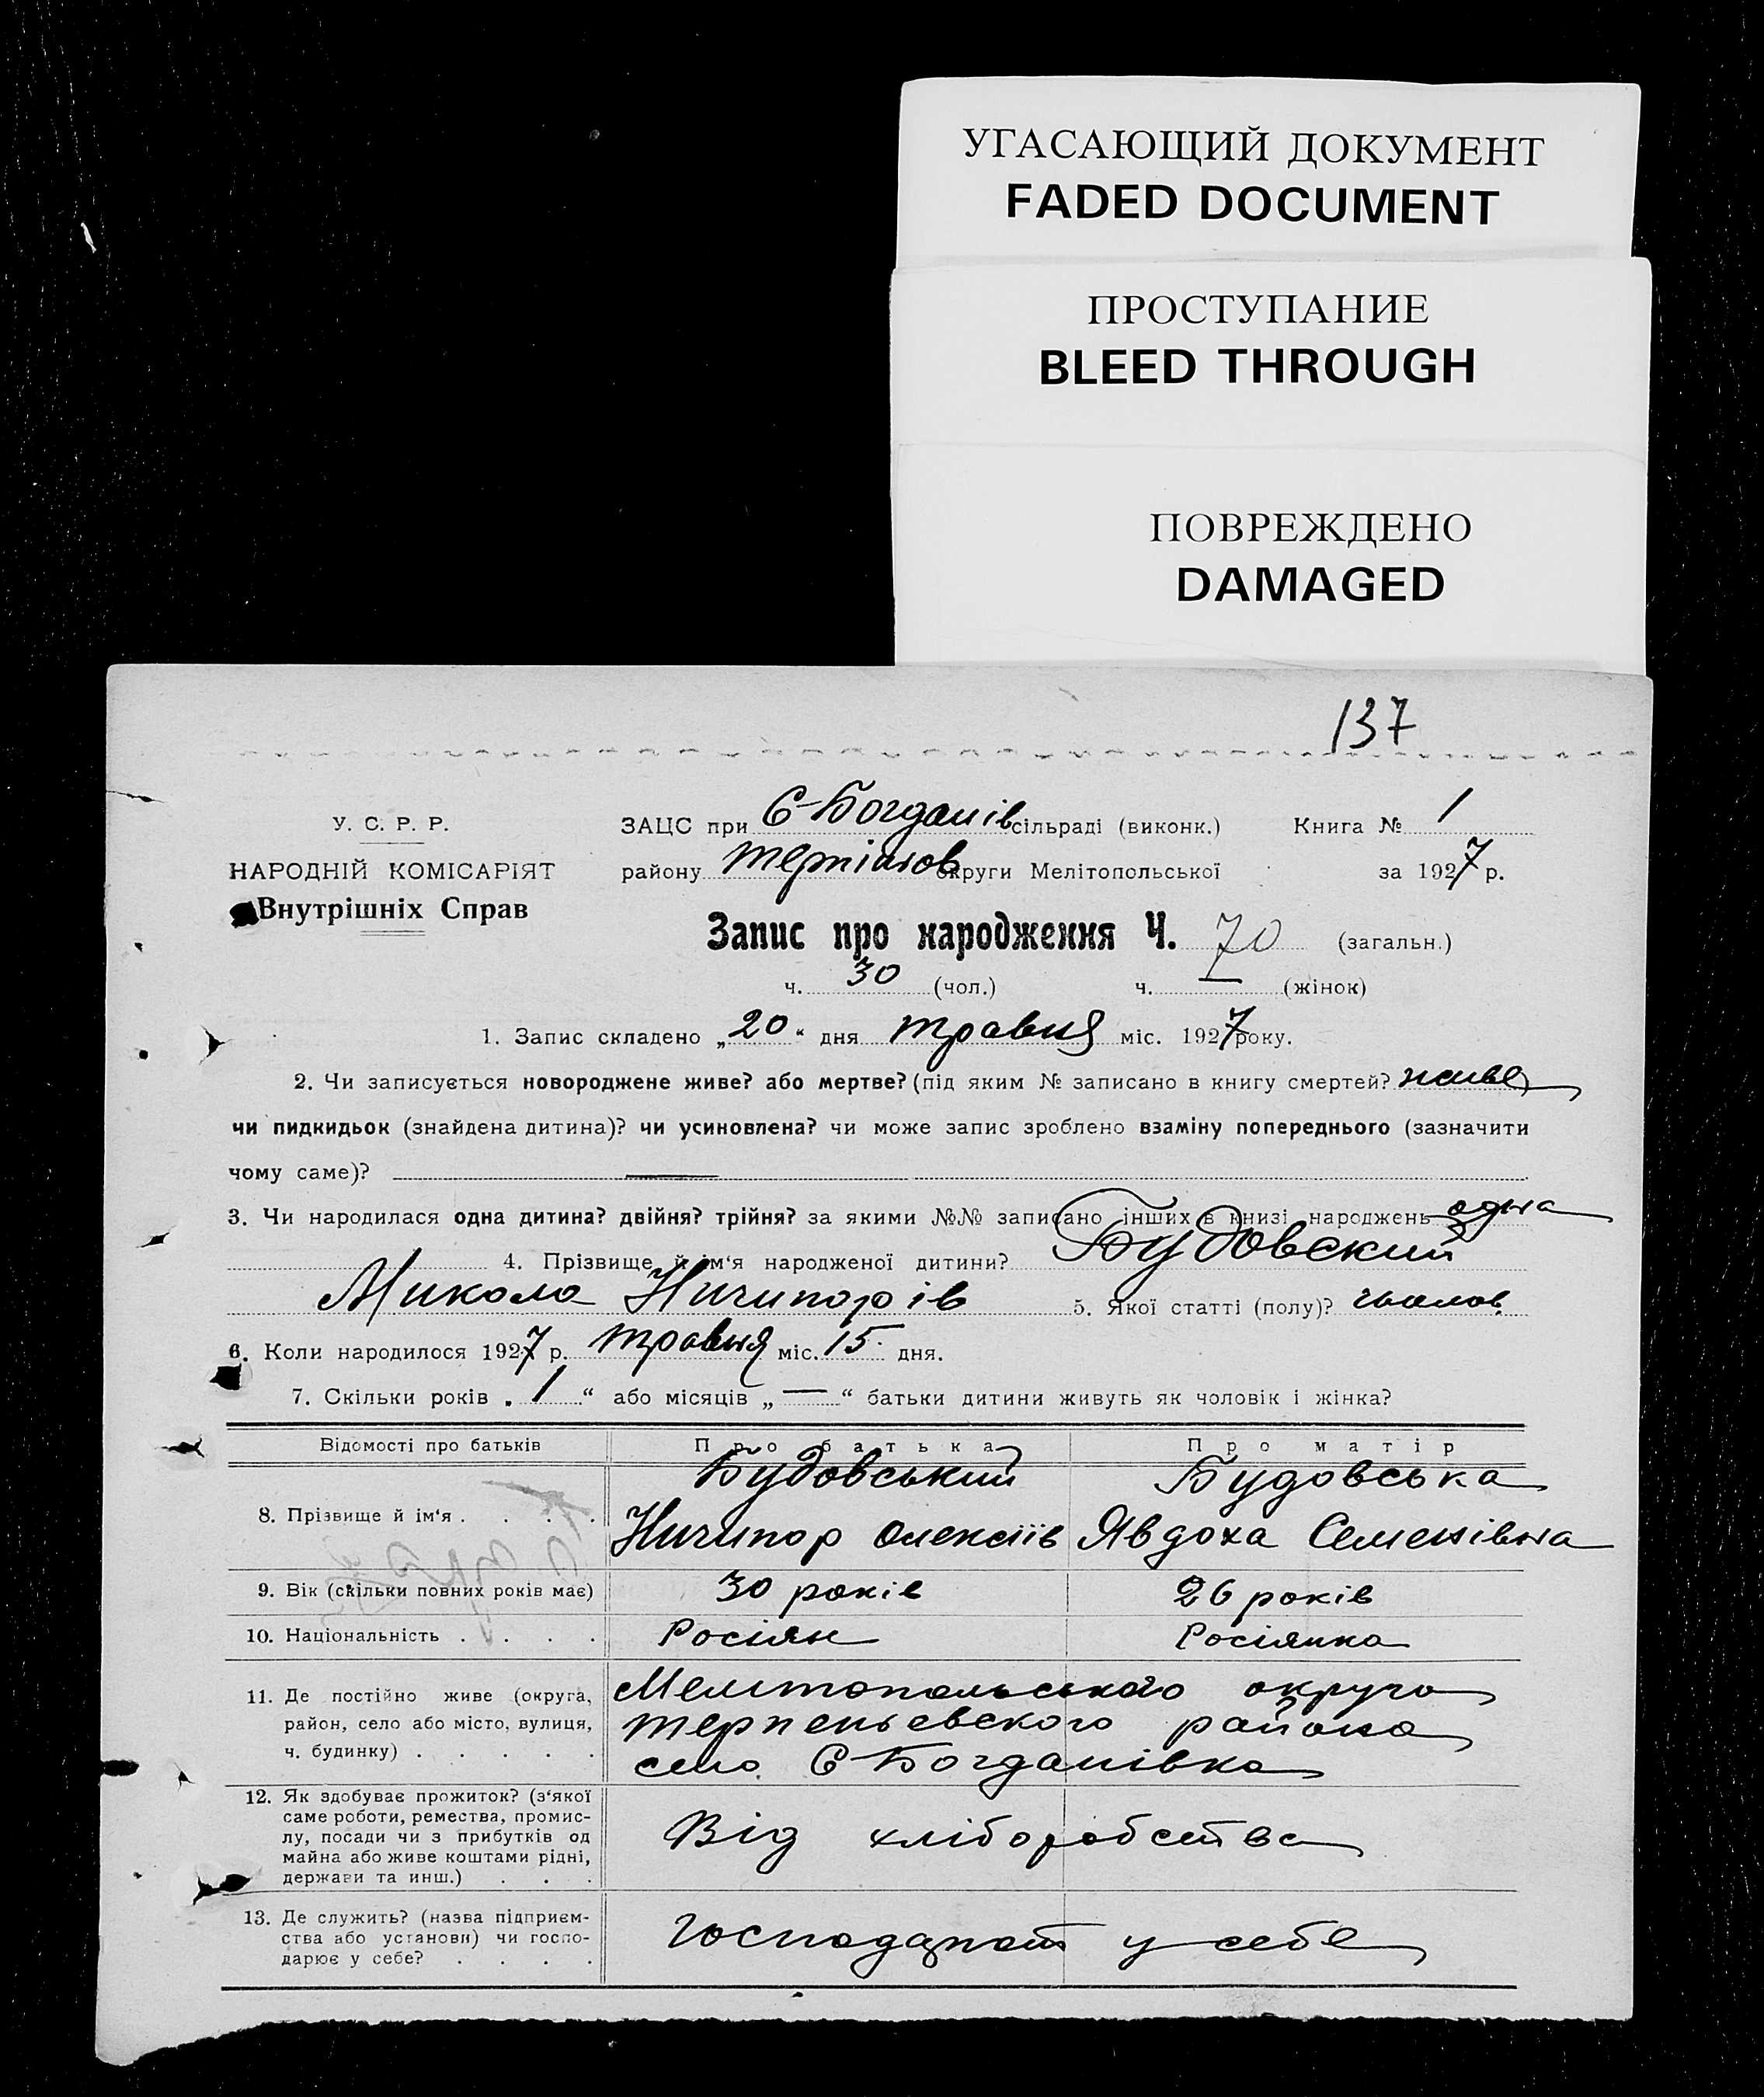 УГАСАЮЩИЙ ДОКУМЕНТ
FADED DOCUMENT
ПРОСТУПАНИЕ
BLEED THROUGH
ПОВРЕЖДЕНО
DAMAGED
137
У. С. Р. Р.
НАРОДНІЙ КОМІСАРІЯТ
Внутрішніх Справ
ЗАЦС при Є-Богданів сільраді (виконк.) Книга № 1
району округи Мелітопольської за 1927 р.
Запис про народження Ч. 70 (загальн.)
ч. 30 (чол.) ч. — (жінок)
1. Запис складено „20“ дня травня міс. 1927 року.
2. Чи записується новороджене живе? або мертве? (під яким № записано в книгу смертей? живе
чи пидкидьок (знайдена дитина)? чи усиновлена? чи може запис зроблено взаміну попереднього (зазначити
чому саме)? —
3. Чи народилася одна дитина? двійня? трійня? за якими №№ записано інших в книзі народжень одна
4. Прізвище й ім‘я народженої дитини? Будовский
Микола Ничипорів 5. Якої статті (полу)? чолов.
6. Коли народилося 1927 р. травня міс. 15 дня.
7. Скільки років „1“ або місяців „—“ батьки дитини живуть як чоловік і жінка?
Відомості про батьків Про батька Про матір
8. Прізвище й ім‘я . . . . Будовський Ничипор Олексіїв Будовська Явдоха Семенівна
9. Вік (скільки повних років має) 30 років 26 років
10. Національність . . . . Росіян Росіянка
11. Де постійно живе (округа, Мелитопольського округа
район, село або місто, вулиця, Терпеньевского района
ч. будинку) . . . . . село Є-Богданівка
12. Як здобуває прожиток? (з‘якої
саме роботи, ремества, промис-
лу, посади чи з прибутків од
майна або живе коштами рідні,
держави та инш.) . . .
Від хліборобства
13. Де служить? (назва підприєм-
ства або установи) чи госпо-
дарює у себе? . . . .
у себе